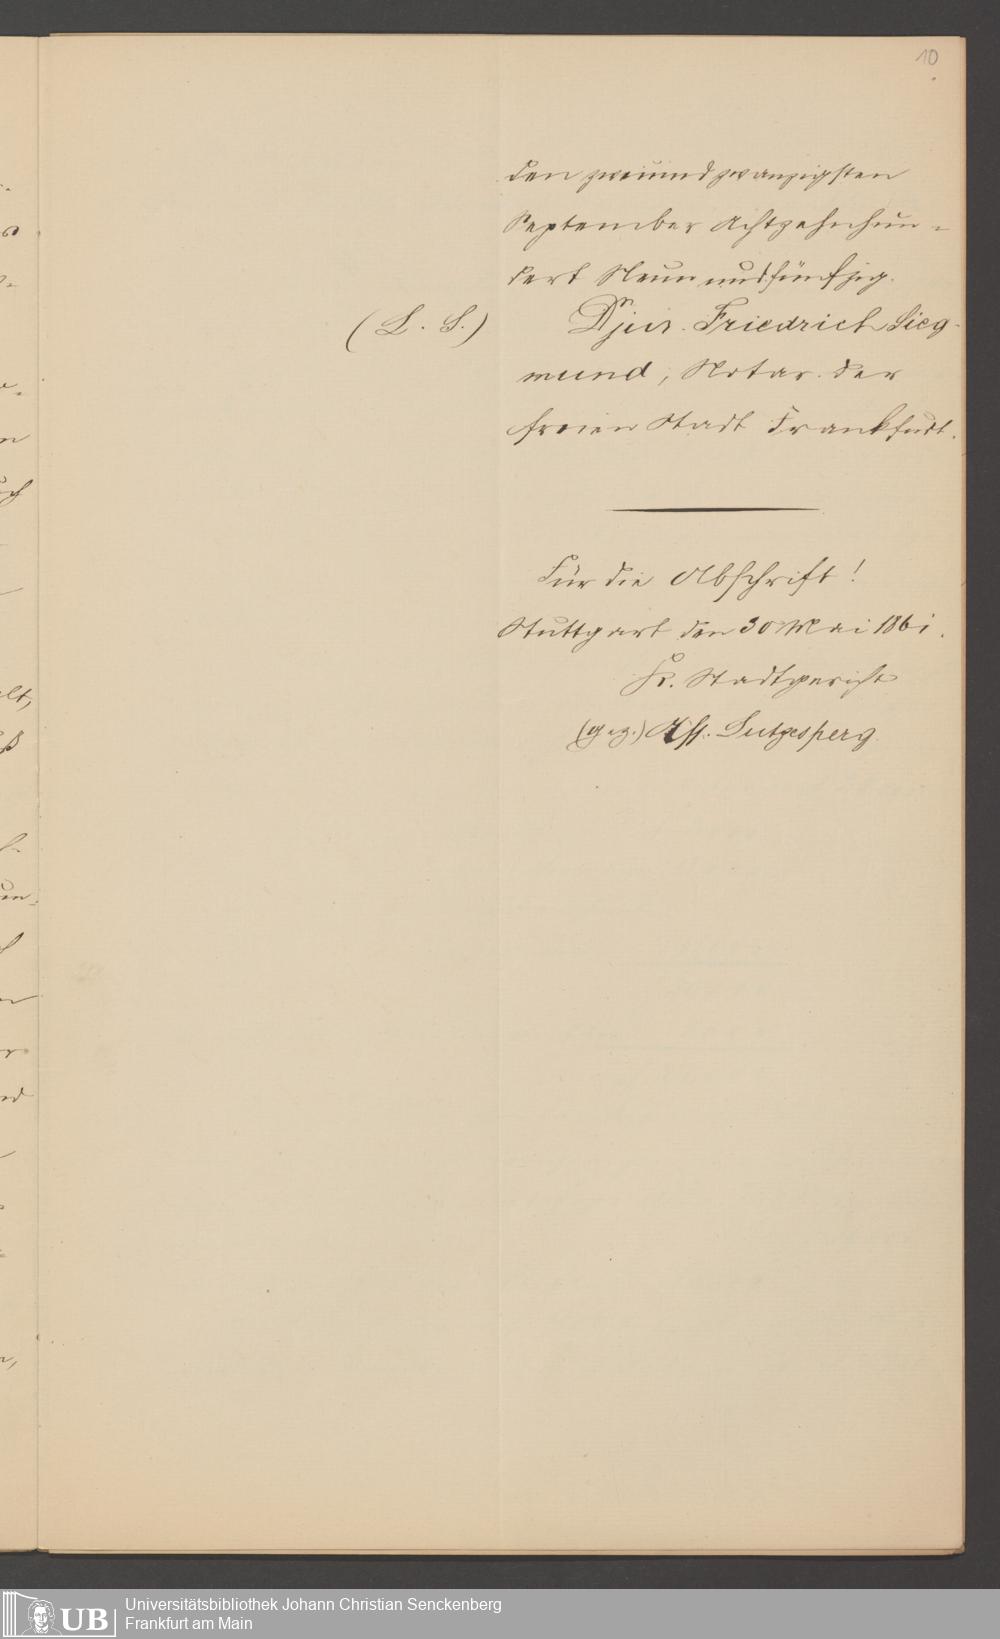 10
den zweiundzwanzigsten
September Achtzehnhun-
dert Neun und fünfzig.
(L. S.) Dr jur. Friedrich Sieg-
mund, Notar der
freien Stadt Frankfurt.
Für die Abschrift!
Stuttgart den 30 Mai 1861.
K. Stadtgericht
(gez.) Ass.
UB
Universitätsbibliothek Johann Christian Senckenberg
Frankfurt am Main